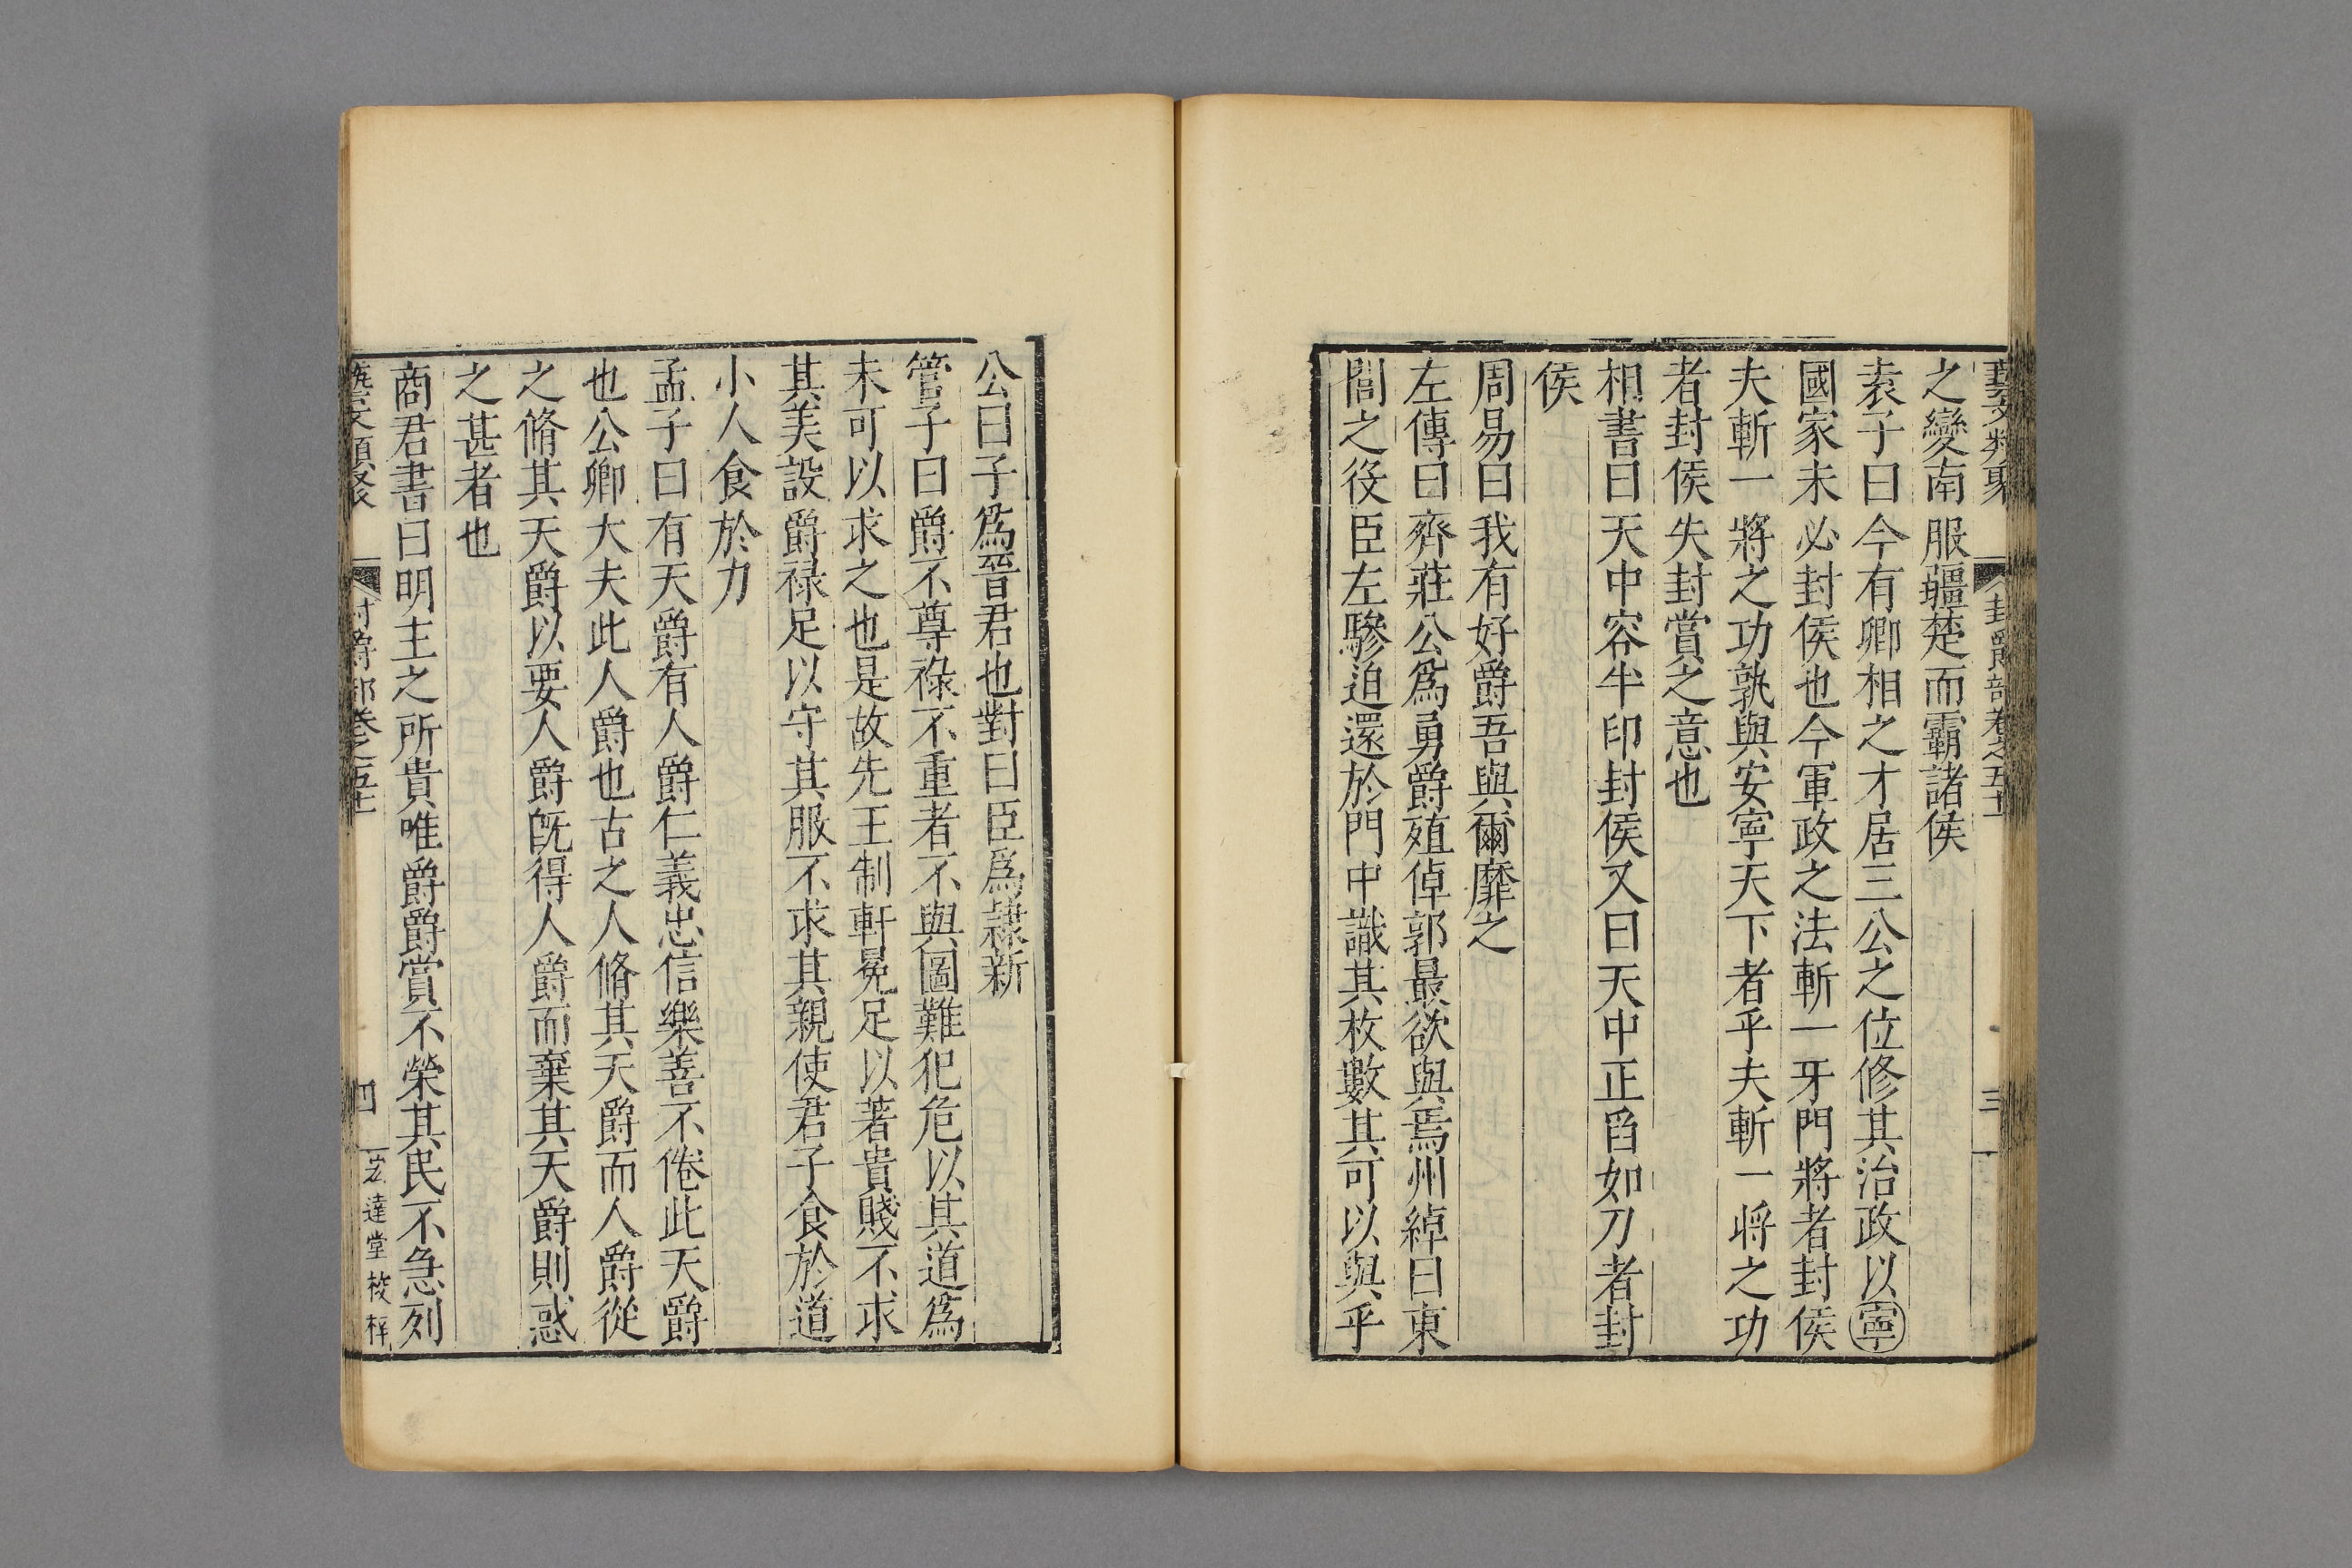 藝文類聚 封爵部卷之五十一 三
之變南服疆楚而霸諸侯
袁子曰今有卿相之才居三公之位修其治政以寧
國家未必封侯也今軍政之法斬一牙門將者封侯
夫斬一將之功孰與安寧天下者乎夫斬一將之功
者封侯失封賞之意也
相書曰天中容半印封侯又曰天中正臽如刀者封
侯
周易曰我有好爵吾與爾靡之
左傳曰齊莊公爲勇爵殖倬郭最欲與焉州綽曰東
閭之役臣左驂迫還於門中識其枚數其可以與乎
公曰子爲晉君也對曰臣爲隷新
管子曰爵不尊祿不重者不與圖難犯危以其道爲
未可以求之也是故先王制軒冕足以著貴賤不求
其美設爵禄足以守其服不求其親使君子食於道
小人食於力
孟子曰有天爵有人爵仁義忠信樂善不倦此天爵
也公卿大夫此人爵也古之人脩其天爵而人爵從
之脩其天爵以要人爵旣得人爵而棄其天爵則惑
之甚者也
商君書曰明主之所貴唯爵爵賞不榮其民不急列
藝文類聚 封爵部卷之五十一 四 宏達堂挍梓